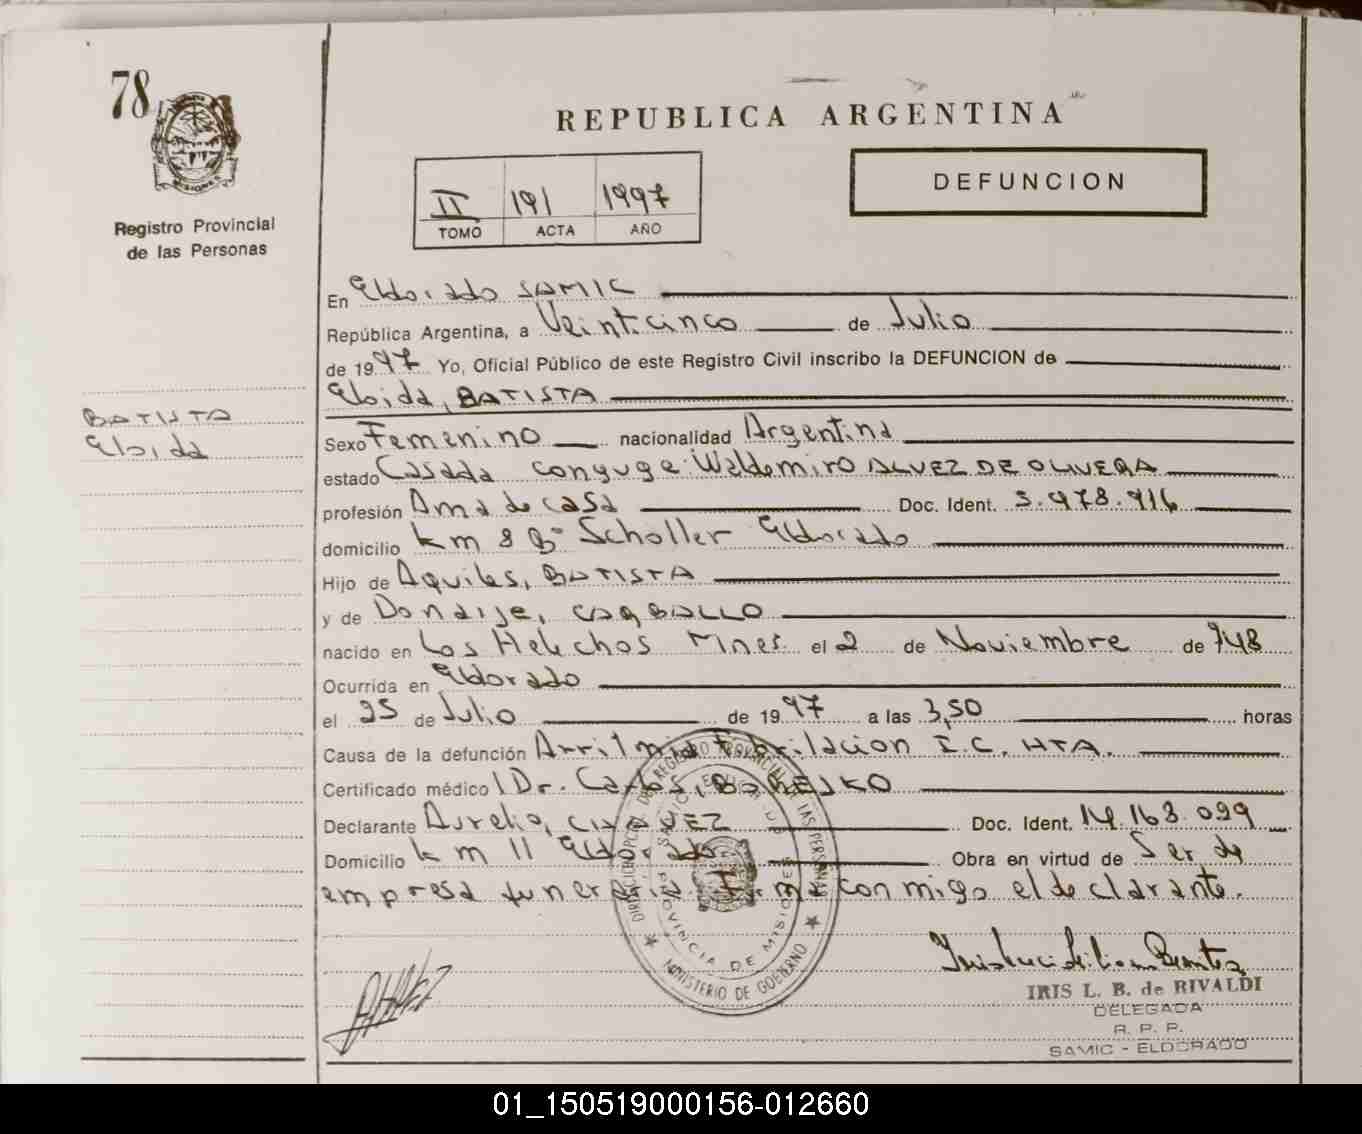 78
MISIONES
Registro Provincial
de las Personas
BATISTA
Elsida
REPUBLICA ARGENTINA
II 191 1997
TOMO ACTA AÑO
DEFUNCION
En Eldorado SAMIC
República Argentina, a Veinticinco de Julio
de 1997 Yo, Oficial Público de este Registro Civil inscribo la DEFUNCION de
Elsida, BATISTA
Sexo Femenino nacionalidad Argentina
estado Casada conyuge: Waldemiro ALVEZ DE OLIVERA
profesión Ama de casa Doc. Ident. 3.978.916
domicilio km 8 Bº Scholler Eldorado
Hijo de Aquiles, BATISTA
y de Donaije, CARBALLO
nacido en Los Helechos Mnes. el 2 de Noviembre de 948
Ocurrida en Eldorado
el 25 de Julio de 1997 a las 3,50 horas
Causa de la defunción Arritmia Fibrilacion I.C. HTA.
Certificado médico Dr. Carlos,
Declarante Aurelio, CHAVEZ Doc. Ident. 14.163.029
Domicilio km 11 Eldorado Obra en virtud de Ser de
empresa funeraria. Firma conmigo el declarante.
DIRECCION PCIAL. DEL REGISTRO PROVINCIAL DE LAS PERSONAS
PROVINCIA DE MISIONES
MINISTERIO DE GOBIERNO
IRIS L. B. de RIVALDI
DELEGADA
R. P. P.
SAMIC - ELDORADO
01_150519000156-012660